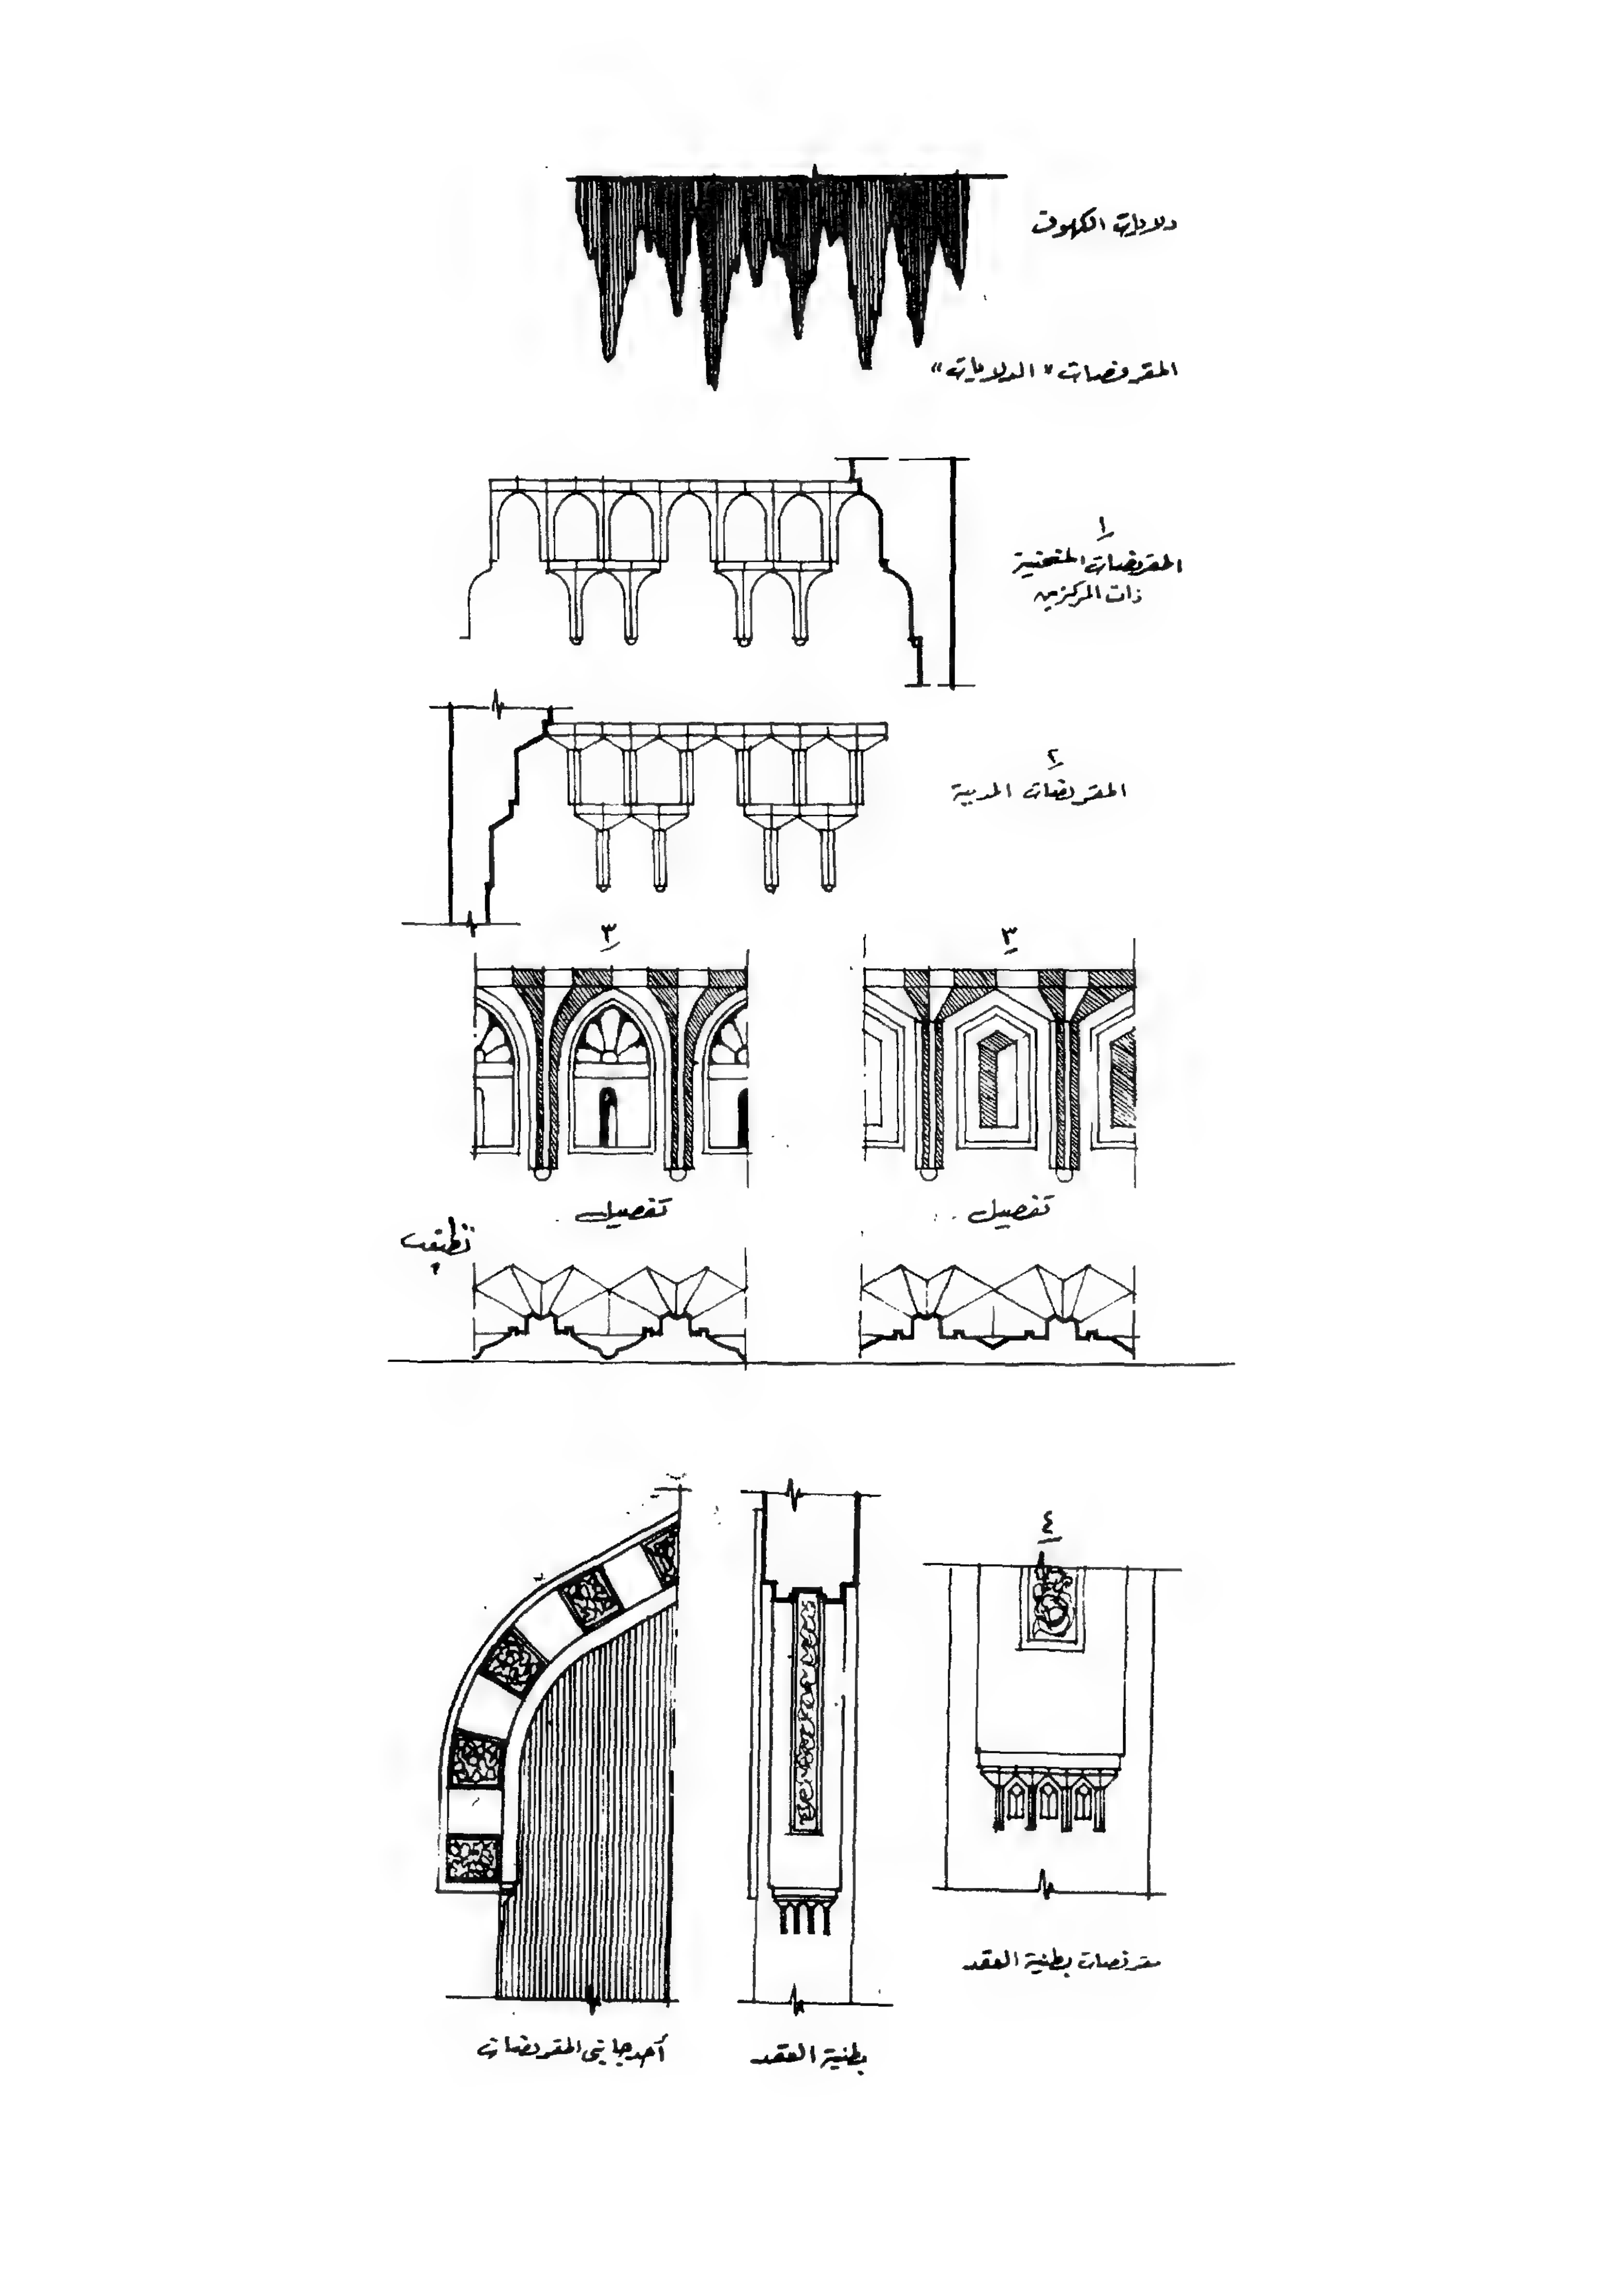 دلايات الكهوف
المقرنصات "الدلايات"
١
المقرنصات المنحنية
ذات المركزين
٢
المقرنصات المدببة
٣
٣
تفصيل
تفصيل
٤
مقرنصات بطنية العقد
بطنية العقد
أحد جانبى المقرنصات